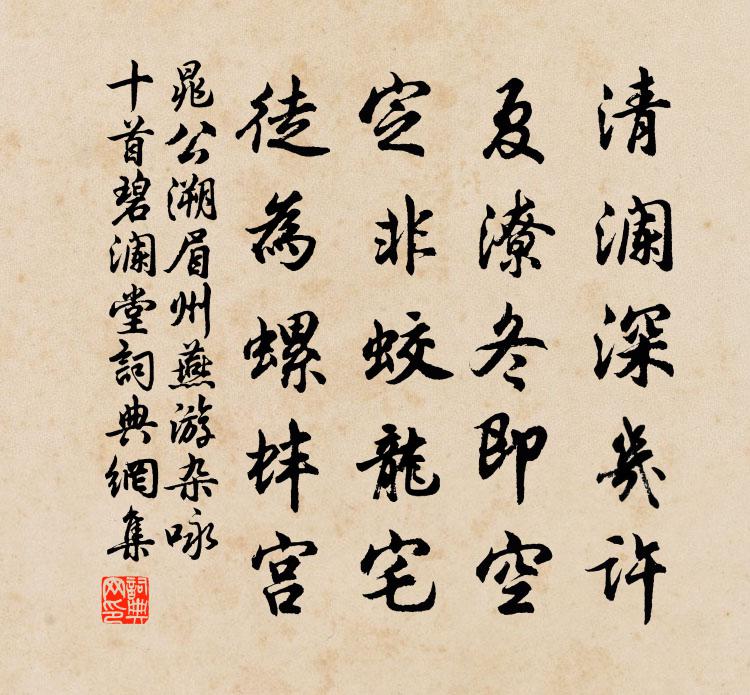 清澜深幾許
夏潦冬即空
定非蛟龍宅
徒為螺蚌宫
晁公溯眉州燕游杂咏
十首碧澜堂詞典網集
詞典网印